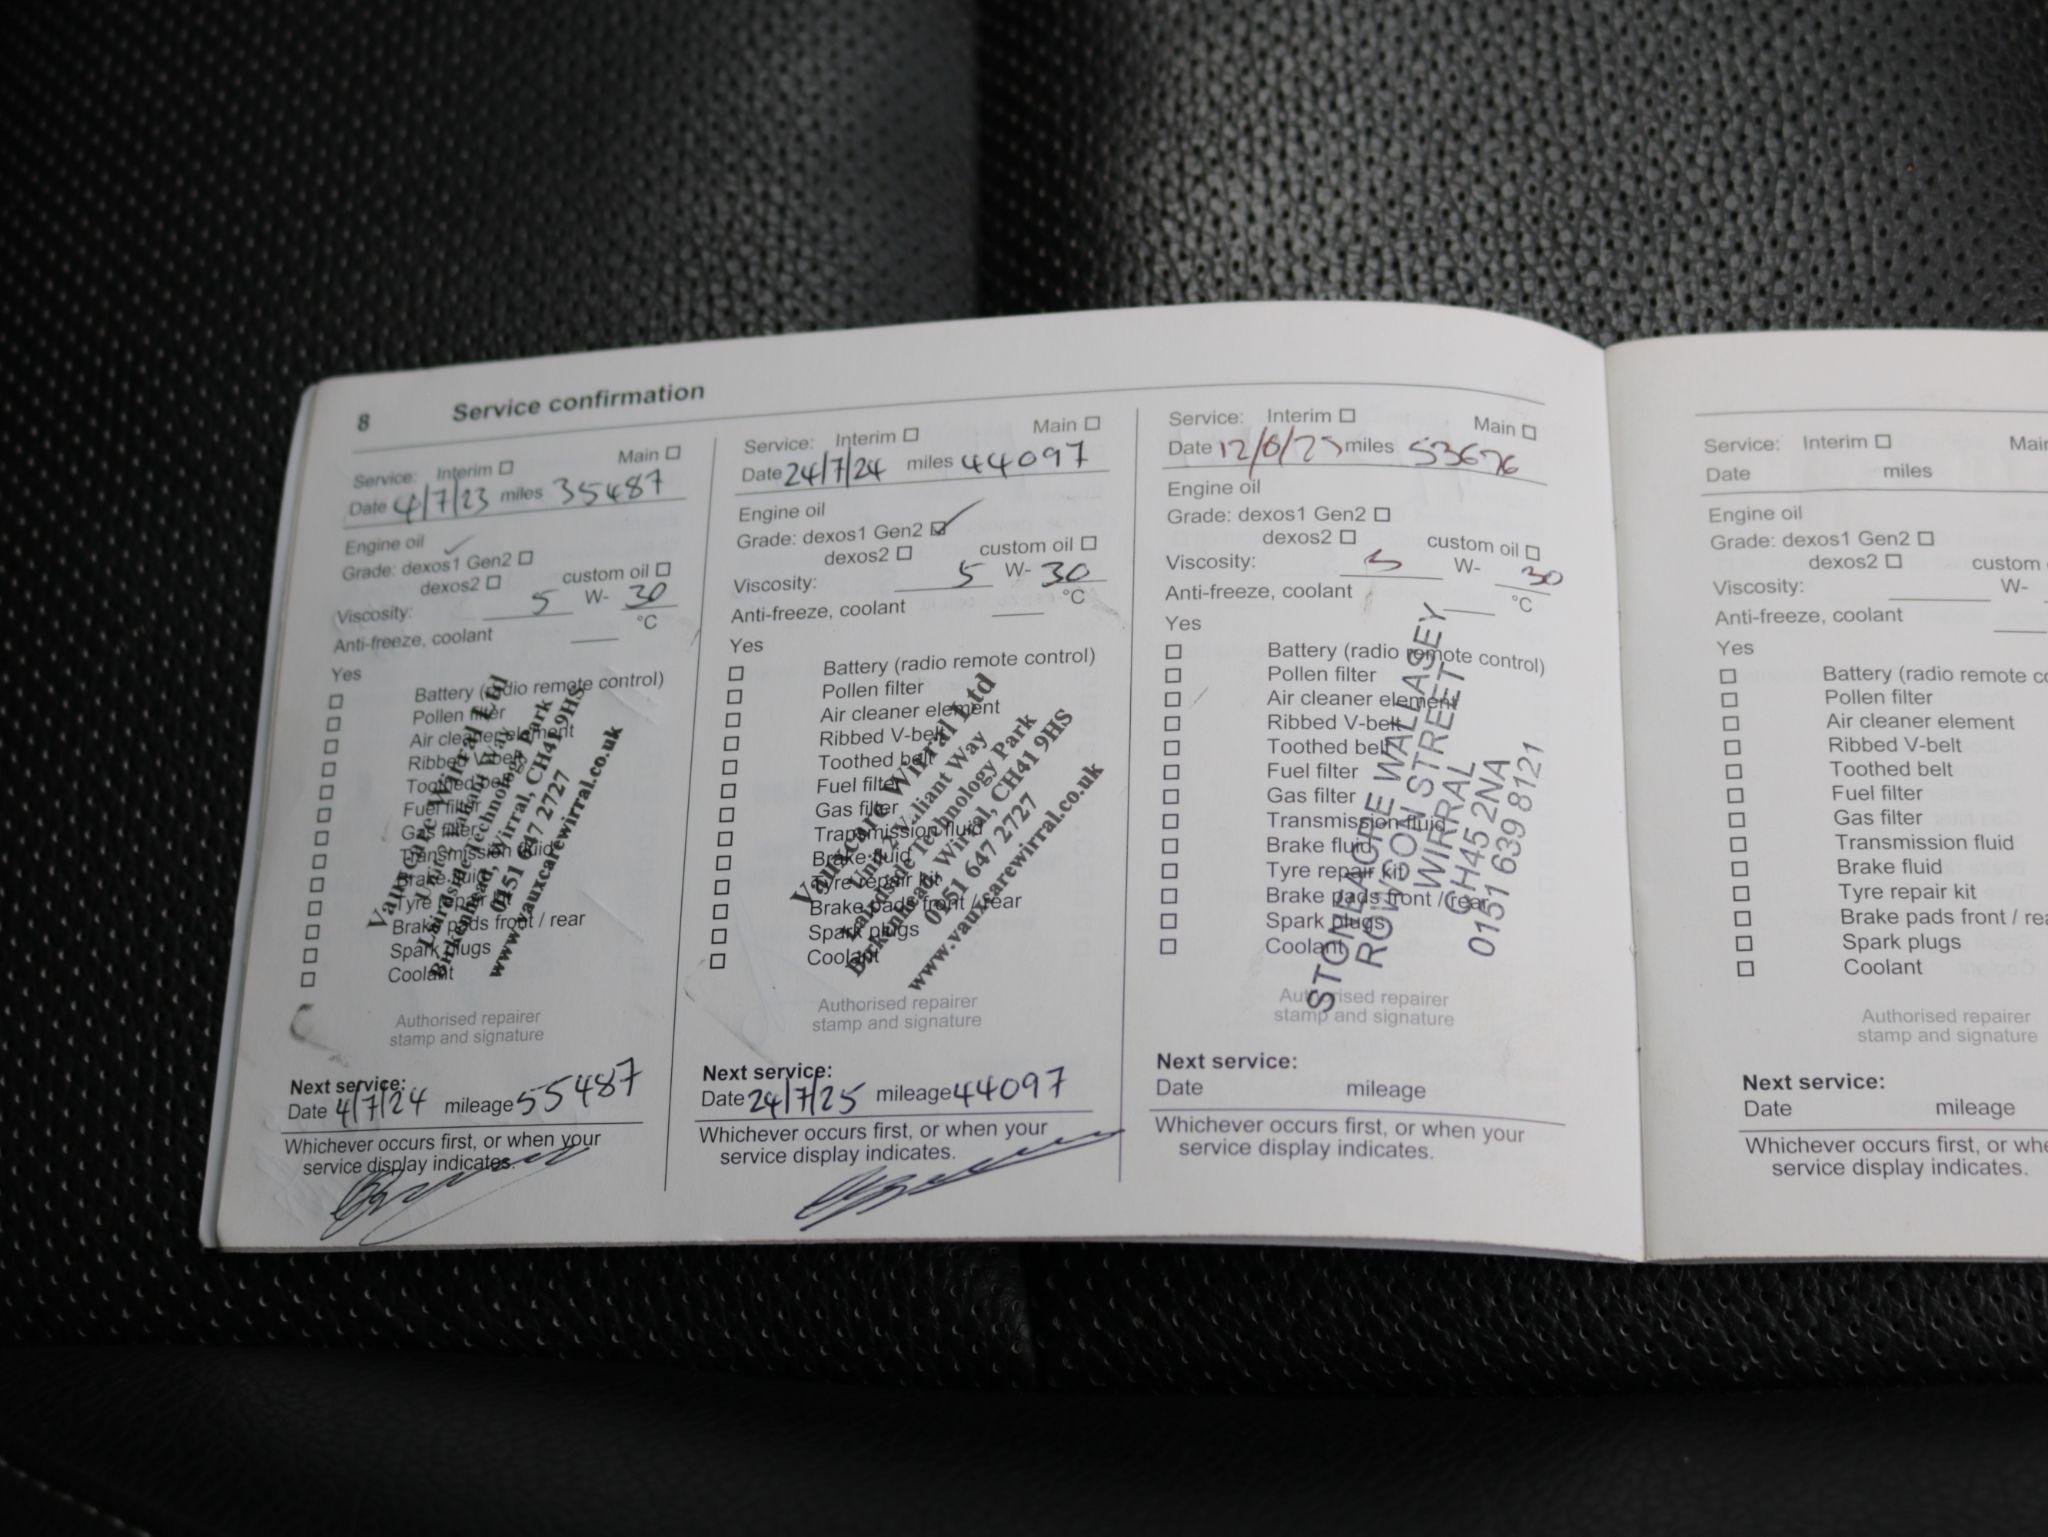 8 Service confirmation
Service: Interim Main
Date 4/7/23 miles 35487
Engine oil
Grade: dexos1 Gen2
dexos2 custom oil
Viscosity: 5 W- 30
Anti-freeze, coolant °C
Yes
Battery (radio remote control)
Pollen filter
Air cleaner element
Ribbed V-belt
Toothed belt
Fuel filter
Gas filter
Transmission fluid
Brake fluid
Tyre repair kit
Brake pads front / rear
Spark plugs
Coolant
Vauxcare Wirral Ltd
Unit 2 Valiant Way
Lairdside Technology Park
Birkenhead, Wirral, CH41 9HS
0151 647 2727
www.vauxcarewirral.co.uk
Authorised repairer
stamp and signature
Next service:
Date 4/7/24 mileage 55487
Whichever occurs first, or when your
service display indicates.
Service: Interim Main
Date 24/7/24 miles 44097
Engine oil
Grade: dexos1 Gen2
dexos2 custom oil
Viscosity: 5 W- 30
Anti-freeze, coolant °C
Yes
Battery (radio remote control)
Pollen filter
Air cleaner element
Ribbed V-belt
Toothed belt
Fuel filter
Gas filter
Transmission fluid
Brake fluid
Tyre repair kit
Brake pads front / rear
Spark plugs
Coolant
Vauxcare Wirral Ltd
Unit 2 Valiant Way
Lairdside Technology Park
Birkenhead, Wirral, CH41 9HS
0151 647 2727
www.vauxcarewirral.co.uk
Authorised repairer
stamp and signature
Next service:
Date 24/7/25 mileage 44097
Whichever occurs first, or when your
service display indicates.
Service: Interim Main
Date miles 53676
Engine oil
Grade: dexos1 Gen2
dexos2 custom oil
Viscosity: 5 W- 30
Anti-freeze, coolant °C
Yes
Battery (radio remote control)
Pollen filter
Air cleaner element
Ribbed V-belt
Toothed belt
Fuel filter
Gas filter
Transmission fluid
Brake fluid
Tyre repair kit
Brake pads front / rear
Spark plugs
Coolant
STONEACRE WALLASEY
ROWSON STREET
WIRRAL
CH45 2NA
0151 639 8121
Authorised repairer
stamp and signature
Next service:
Date mileage
Whichever occurs first, or when your
service display indicates.
Service: Interim Main
Date miles
Engine oil
Grade: dexos1 Gen2
dexos2 custom
Viscosity: W-
Anti-freeze, coolant
Yes
Battery (radio remote co
Pollen filter
Air cleaner element
Ribbed V-belt
Toothed belt
Fuel filter
Gas filter
Transmission fluid
Brake fluid
Tyre repair kit
Brake pads front / rea
Spark plugs
Coolant
Authorised repairer
stamp and signature
Next service:
Date mileage
Whichever occurs first, or whe
service display indicates.